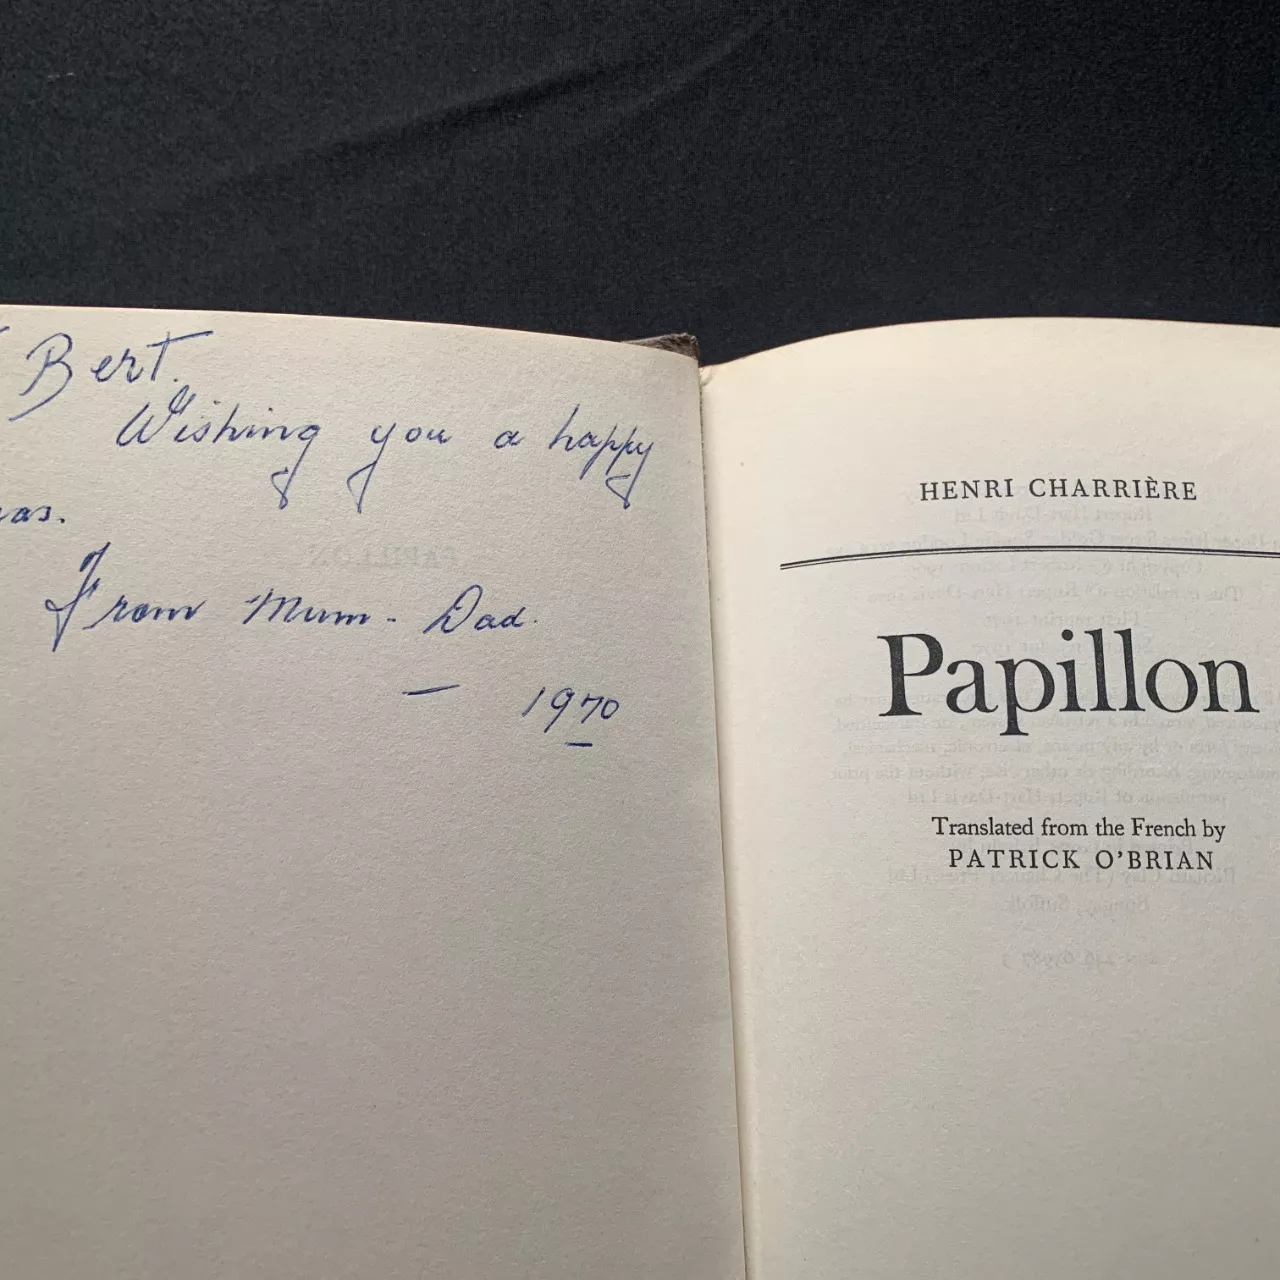 Bert.
Wishing you a happy
as.
From Mum - Dad.
— 1970
HENRI CHARRIÈRE
Papillon
Translated from the French by
PATRICK O'BRIAN